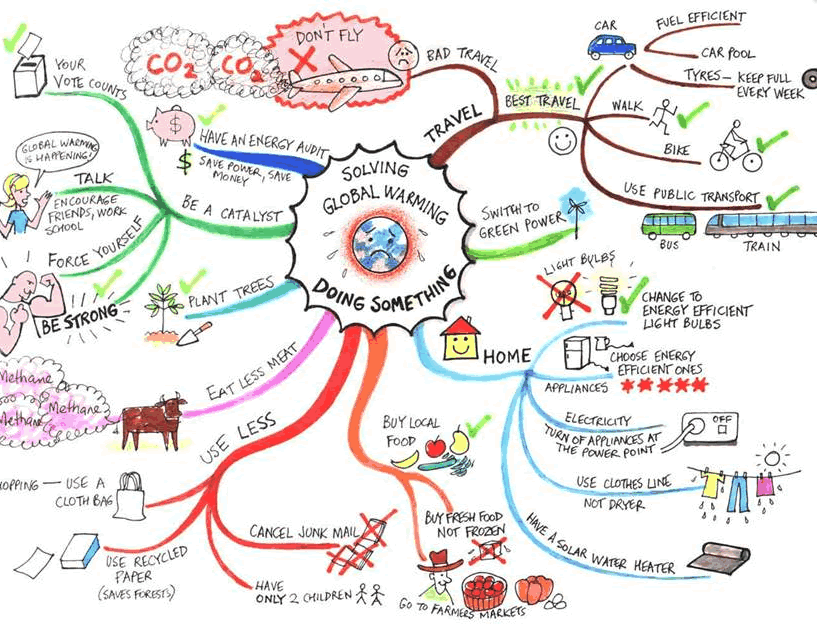 SOLVING
GLOBAL WARMING
DOING SOMETHING
TRAVEL
BAD TRAVEL
DON'T FLY
CO2
CO2
BEST TRAVEL
CAR
FUEL EFFICIENT
CAR POOL
TYRES — KEEP FULL
EVERY WEEK
WALK
BIKE
USE PUBLIC TRANSPORT
BUS
TRAIN
SWITH TO
GREEN POWER
HOME
LIGHT BULBS
CHANGE TO
ENERGY EFFICIENT
LIGHT BULBS
CHOOSE ENERGY
EFFICIENT ONES
APPLIANCES
ELECTRICITY
TURN OF APPLIANCES AT
THE POWER POINT
OFF
USE CLOTHES LINE
NOT DRYER
HAVE A SOLAR WATER HEATER
BUY LOCAL
FOOD
BUY FRESH FOOD
NOT FROZEN
GO TO FARMERS MARKETS
USE LESS
CANCEL JUNK MAIL
HAVE
ONLY 2 CHILDREN
USE RECYCLED
PAPER
(SAVES FORESTS)
OPPING — USE A
CLOTH BAG
EAT LESS MEAT
Methane
Methane
Methane
PLANT TREES
BE A CATALYST
YOUR
VOTE COUNTS
TALK
ENCOURAGE
FRIENDS, WORK
SCHOOL
GLOBAL WARMING
IS HAPPENING!
FORCE YOURSELF
BE STRONG
HAVE AN ENERGY AUDIT
SAVE POWER, SAVE
MONEY
$
$